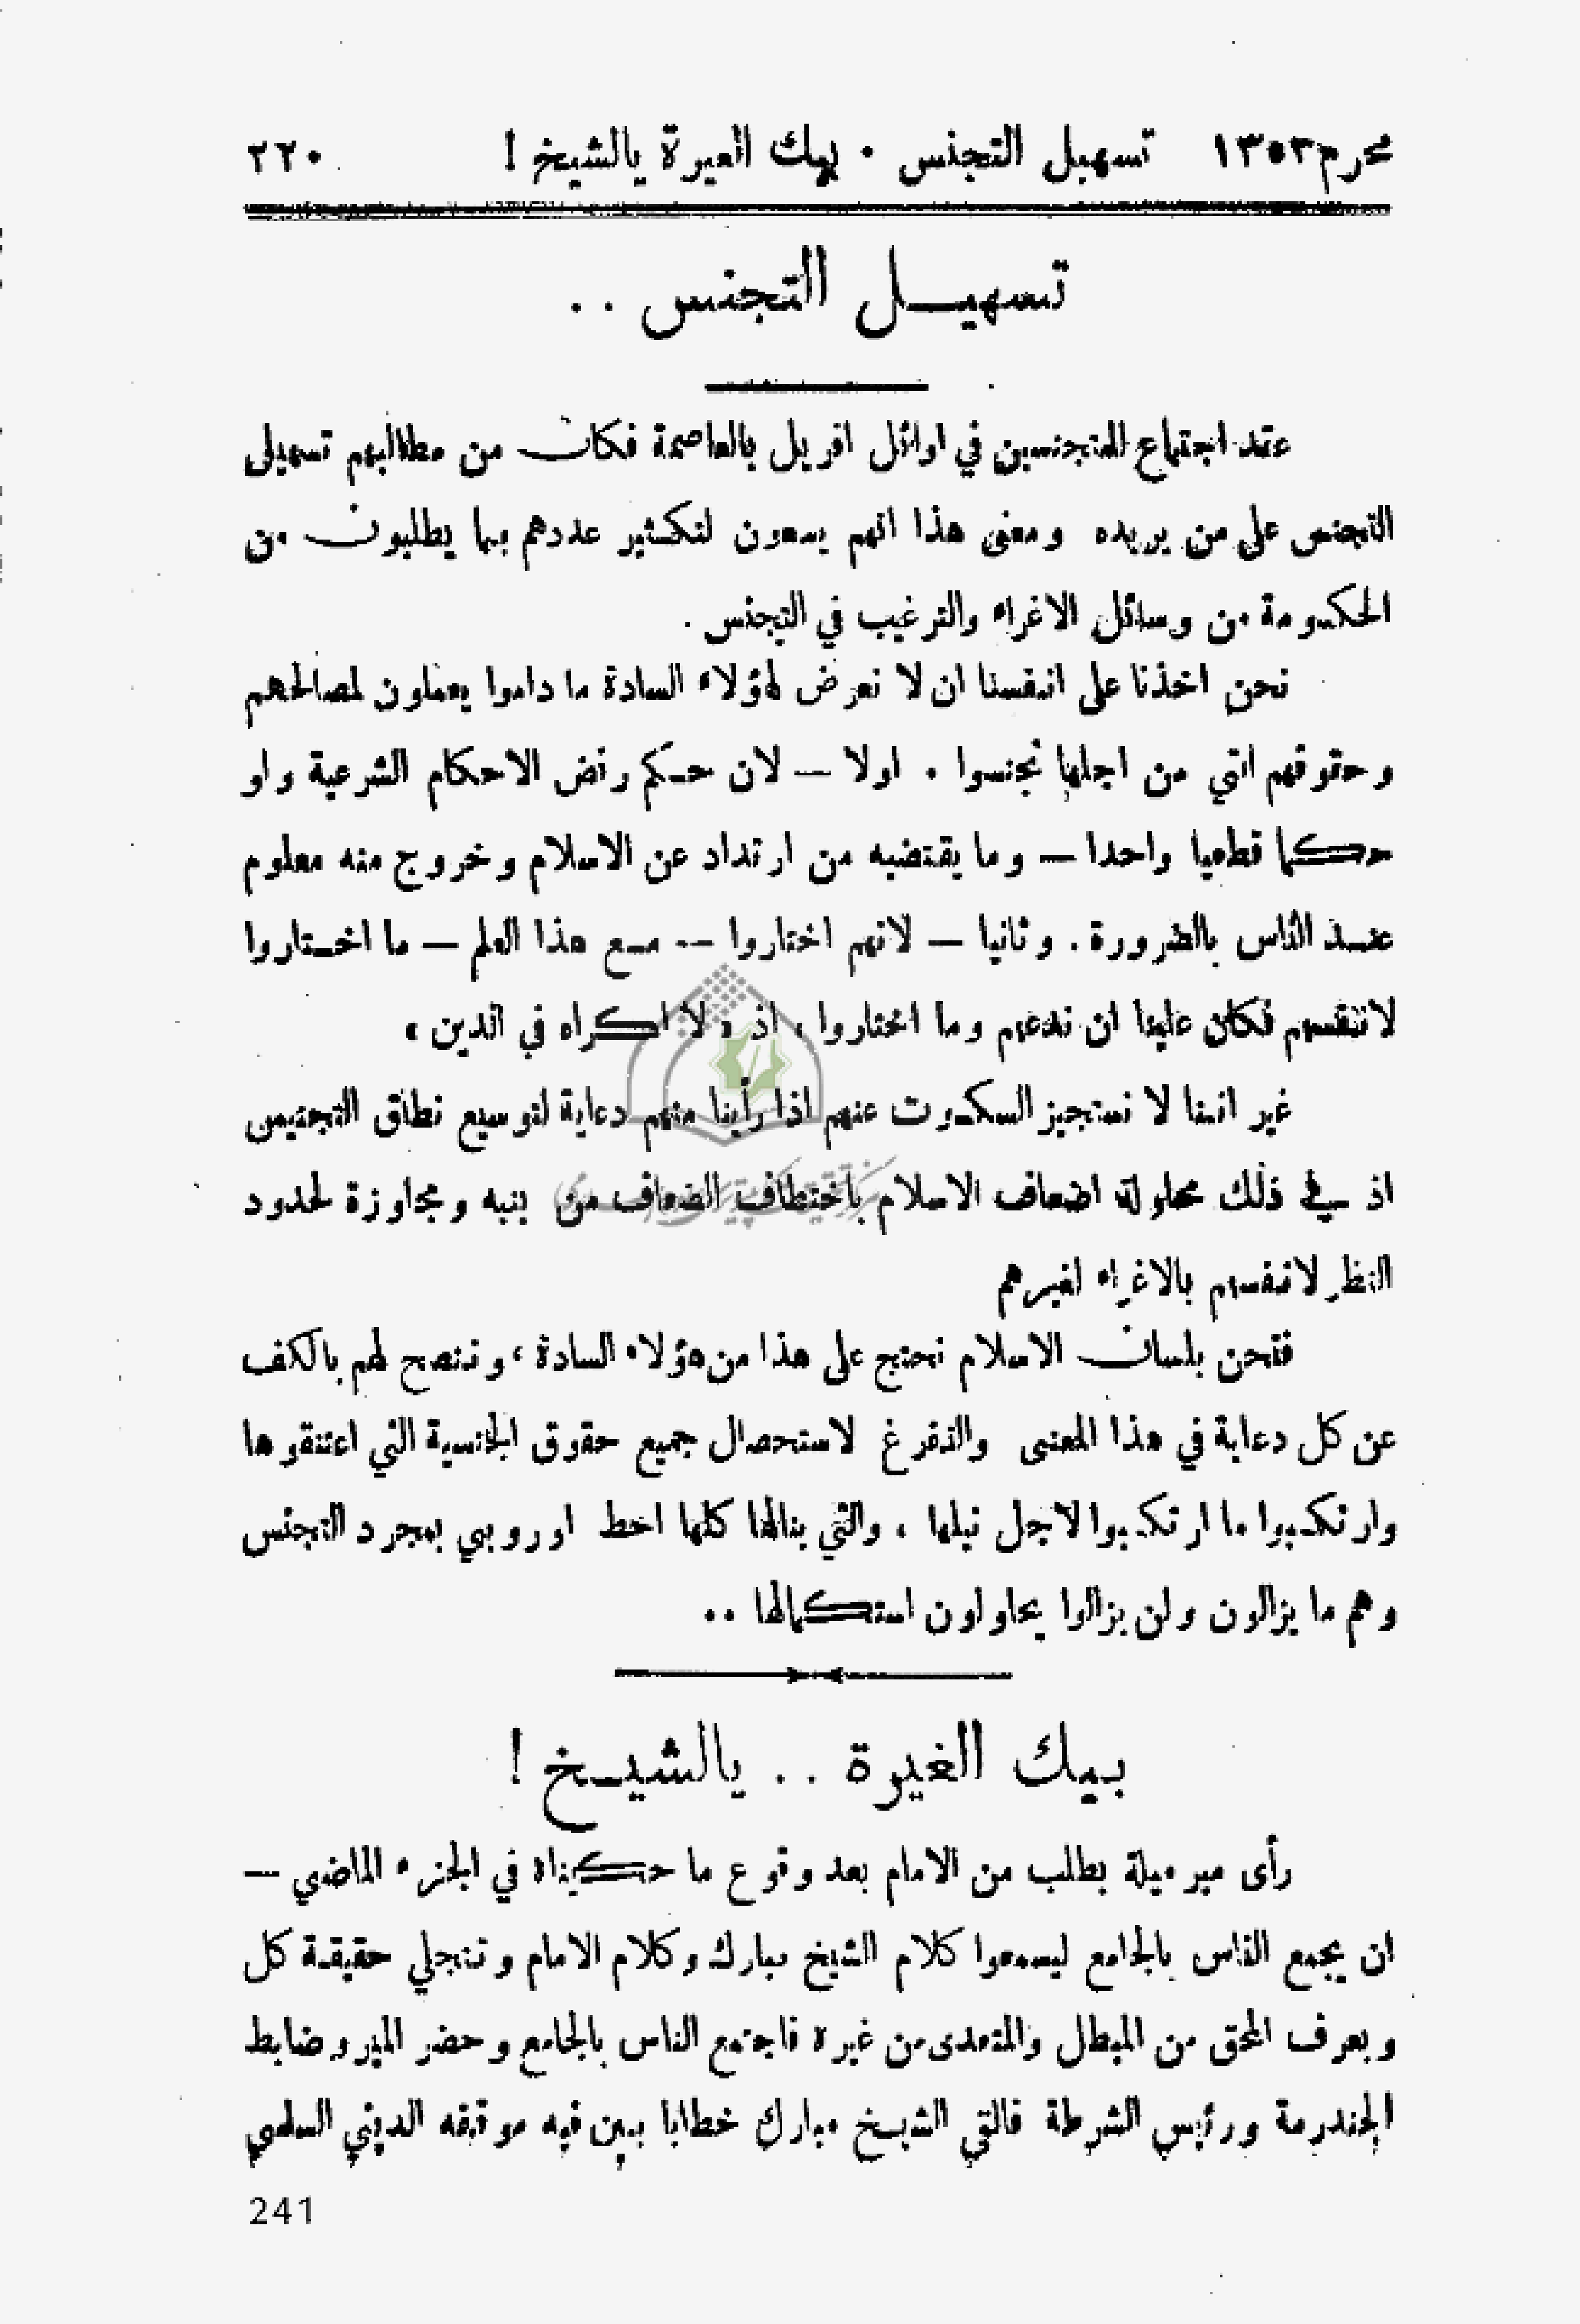 محرم ١٣٥٣ تسهيل التجنس • بيك الغيرة يالشيخ ! ٢٢٠
تسهيل التجنس . .
عقد اجتماع المتجنسين في اوائل افريل بالعاصمة فكان من مطالبهم تسهيل
التجنس على من يريده ومعنى هذا انهم يسعون لتكثير عددهم بما يطلبون من
الحكومة من وسائل الاغراء والترغيب في التجنس .
نحن اخذنا على انفسنا ان لا نعرض لهؤلاء السادة ما داموا يعملون لمصالحهم
وحقوقهم التي من اجلها تجنسوا . اولا — لان حكم رفض الاحكام الشرعية ولو
حكما قطعيا واحدا — وما يقتضيه من ارتداد عن الاسلام وخروج منه معلوم
عند الناس بالضرورة . وثانيا — لانهم اختاروا -- مع هذا العلم — ما اختاروا
لانفسهم فكان علينا ان ندعهم وما اختاروا ، اذ « لا اكراه في الدين »
غير اننا لا نستجيز السكوت عنهم اذا رأينا منهم دعاية لتوسيع نطاق التجنيس
اذ في ذلك محاولة اضعاف الاسلام باختطاف الضعاف من بنيه ومجاوزة لحدود
النظر لانفسهم بالاغراء لغيرهم
فنحن بلسان الاسلام نحتج على هذا من هؤلاء السادة ، وننصح لهم بالكف
عن كل دعاية في هذا المعنى والتفرغ لاستحصال جميع حقوق الجنسية التي اعتنقوها
وارتكبوا ما ارتكبوا لاجل نيلها ، والتي ينالها كلها احط اوروبي بمجرد التجنس
وهم ما يزالون ولن يزالوا يحاولون استكمالها ..
بيك الغيرة . . يالشيخ !
رأى مير ميلة بطلب من الامام بعد وقوع ما حكيناه في الجزء الماضي —
ان يجمع الناس بالجامع ليسمعوا كلام الشيخ مبارك وكلام الامام وتتجلي حقيقة كل
ويعرف المحق من المبطل والمتعدى من غيره فاجتمع الناس بالجامع وحضر المير وضابط
الجندرمة ورئيس الشرطة فالقي الشيخ مبارك خطابا بين فيه موقفه الديني السلمي
241